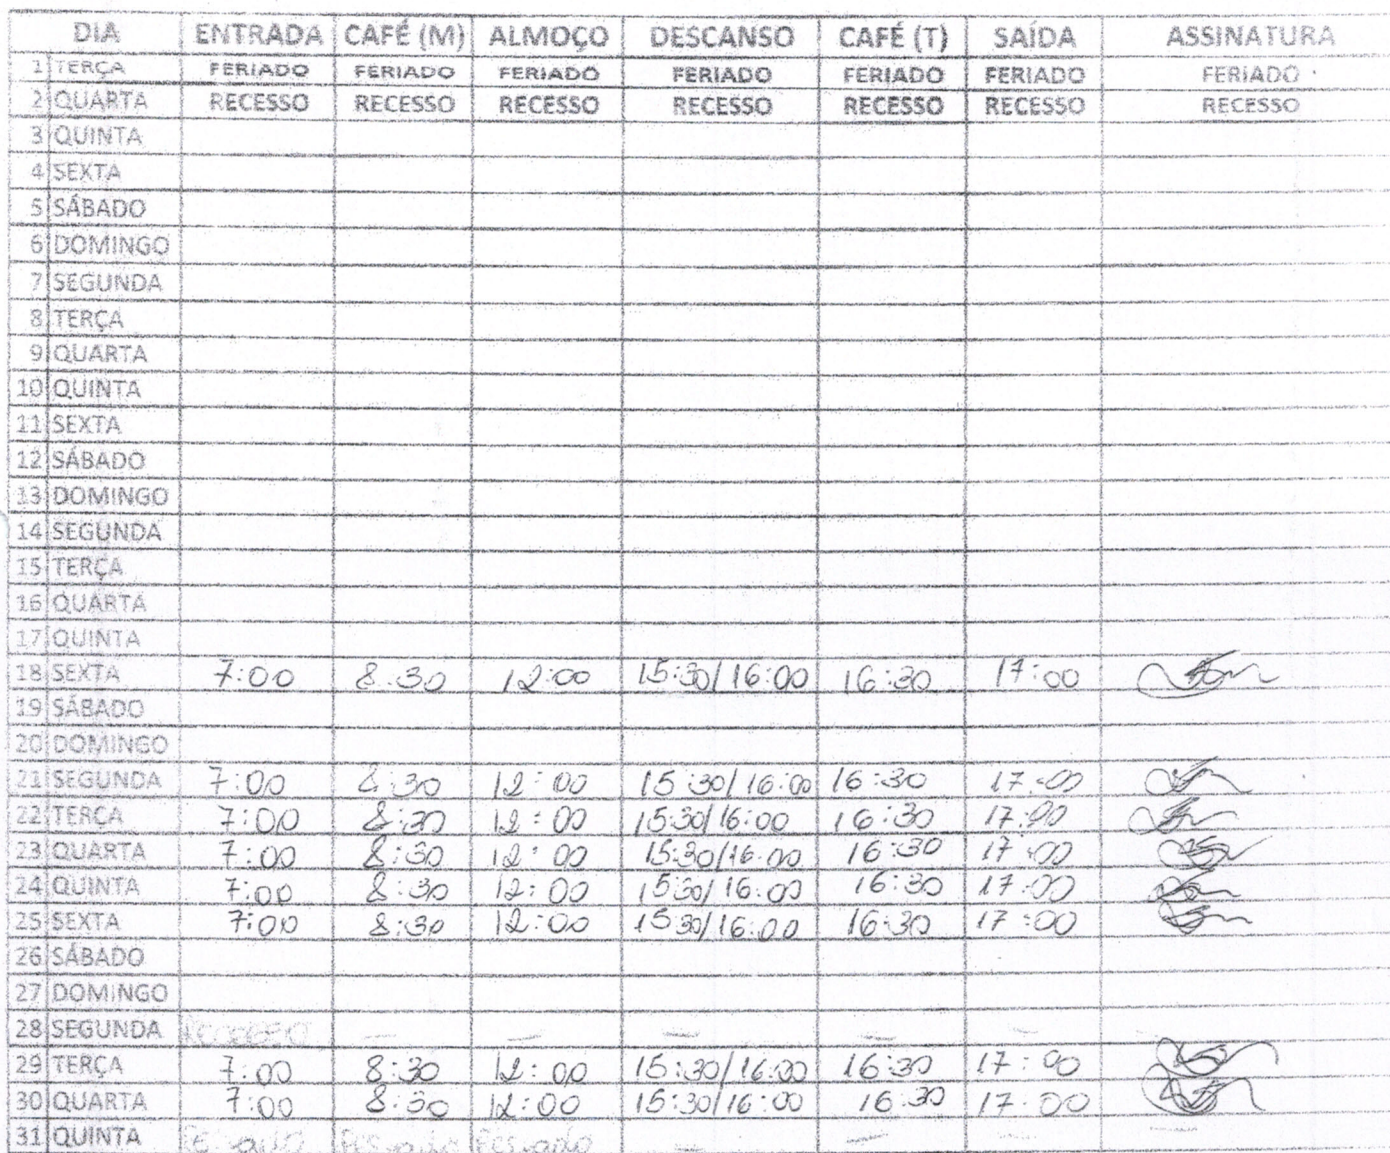 DIA ENTRADA CAFÉ (M) ALMOÇO DESCANSO CAFÉ (T) SAÍDA ASSINATURA
1 TERÇA FERIADO FERIADO FERIADO FERIADO FERIADO FERIADO FERIADO
2 QUARTA RECESSO RECESSO RECESSO RECESSO RECESSO RECESSO RECESSO
3 QUINTA
4 SEXTA
5 SÁBADO
6 DOMINGO
7 SEGUNDA
8 TERÇA
9 QUARTA
10 QUINTA
11 SEXTA
12 SÁBADO
13 DOMINGO
14 SEGUNDA
15 TERÇA
16 QUARTA
17 QUINTA
18 SEXTA 7:00 8:30 12:00 15:30/16:00 16:30 17:00
19 SÁBADO
20 DOMINGO
21 SEGUNDA 7:00 8:30 12:00 15:30/16:00 16:30 17:00
22 TERÇA 7:00 8:30 12:00 15:30/16:00 16:30 17:00
23 QUARTA 7:00 8:30 12:00 15:30/16:00 16:30 17:00
24 QUINTA 7:00 8:30 12:00 15:30/16:00 16:30 17:00
25 SEXTA 7:00 8:30 12:00 15:30/16:00 16:30 17:00
26 SÁBADO
27 DOMINGO
28 SEGUNDA Recesso — — — — — —
29 TERÇA 7:00 8:30 12:00 15:30/16:00 16:30 17:00
30 QUARTA 7:00 8:30 12:00 15:30/16:00 16:30 17:00
31 QUINTA — — — —